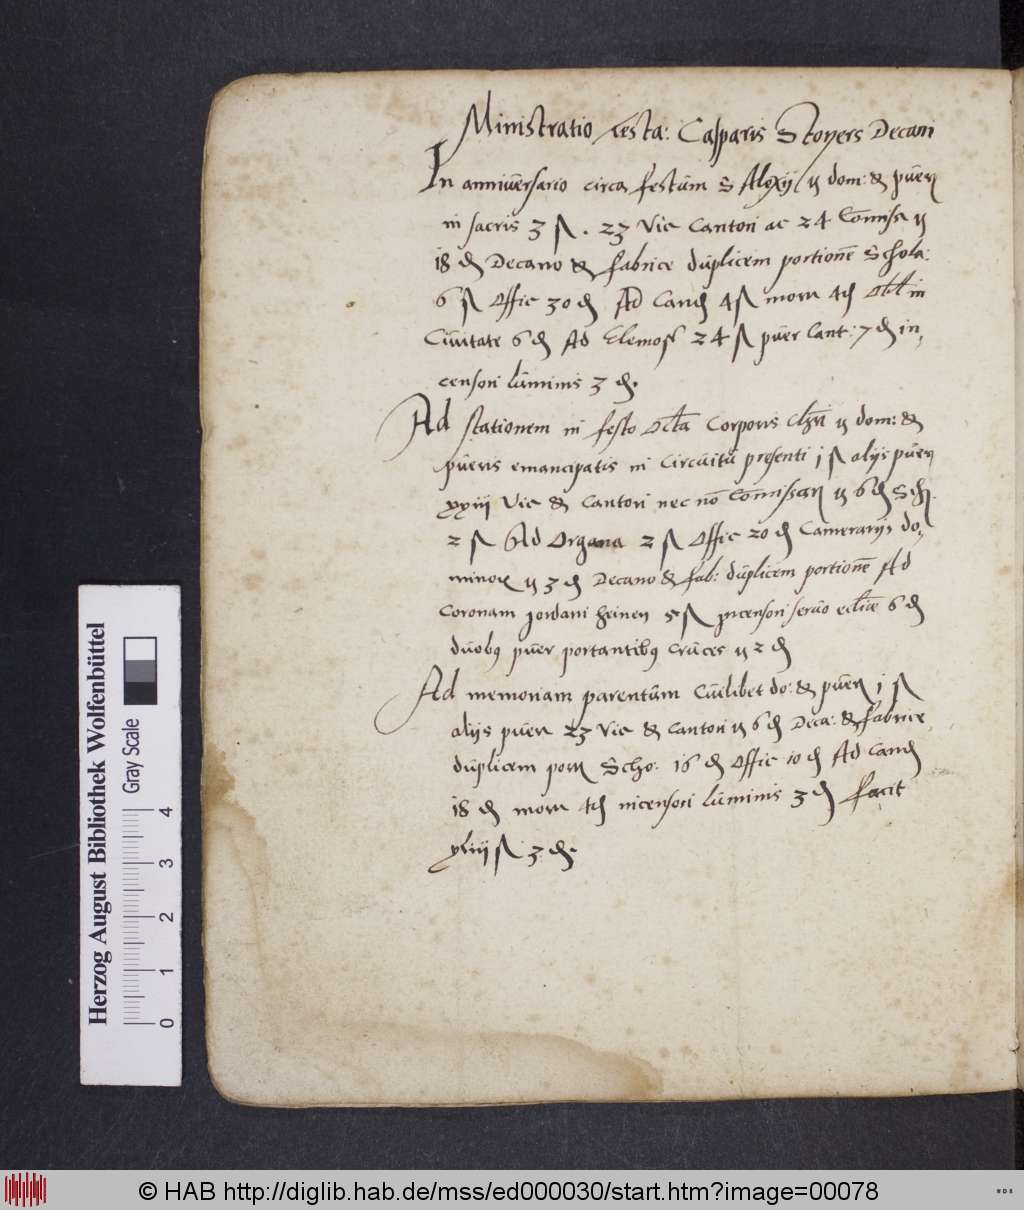 Ministratio testa: Casparis Stoyers Decani
In anniversario circa festum S Alexij ij dom: & puer
in sacris 3 ß. 23 Vic Cantori ac 24 Comiss ij
18 ₰ Decano & fabrice duplicem portione Schola:
6 ß Offic 30 ₰ Ad Cand 4 ß 4 ₰ in
Civitate 6 ₰ Ad Elemos 24 ß puer Cant: 7 ₰ in
censori luminis 3 ₰.
Ad stationem in festo Octa Corporis Chri ij dom: &
pueris emancipatis in Circuitu presenti j ß alijs puer
xxiij Vic & Cantori nec no Comissar ij 6 ₰ Sch
2 ß Ad Organa 2 ß Offic 20 ₰ Camerarijs do
minor ij 3 ₰ Decano & fab: duplicem portione Ad
Coronam jordani heinen 5 ß jncensori servo eccliae 6 ₰
duobus puer portantibus cruces ij 2 ₰
Ad memoriam parentum Cuilibet do: & puer j ß
alijs puer 23 Vic & Cantori ij 6 ₰ Deca: & fabrice
duplicem porn Scho: 16 ₰ Offic 10 ₰ Ad Cand
18 ₰ 4 ₰ incensori luminis 3 ₰ facit
xliij ß 3 ₰.
Herzog August Bibliothek Wolfenbüttel
Gray Scale
0 1 2 3 4
© HAB http://diglib.hab.de/mss/ed000030/start.htm?image=00078